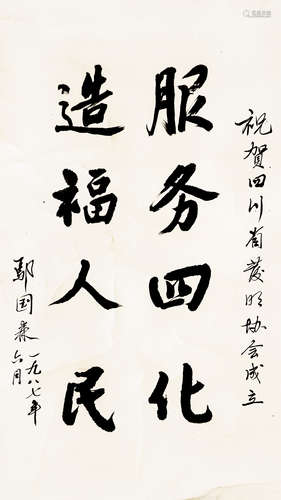 祝贺四川省发明协会成立
服务四化
造福人民
鄢国森 一九八七年
六月